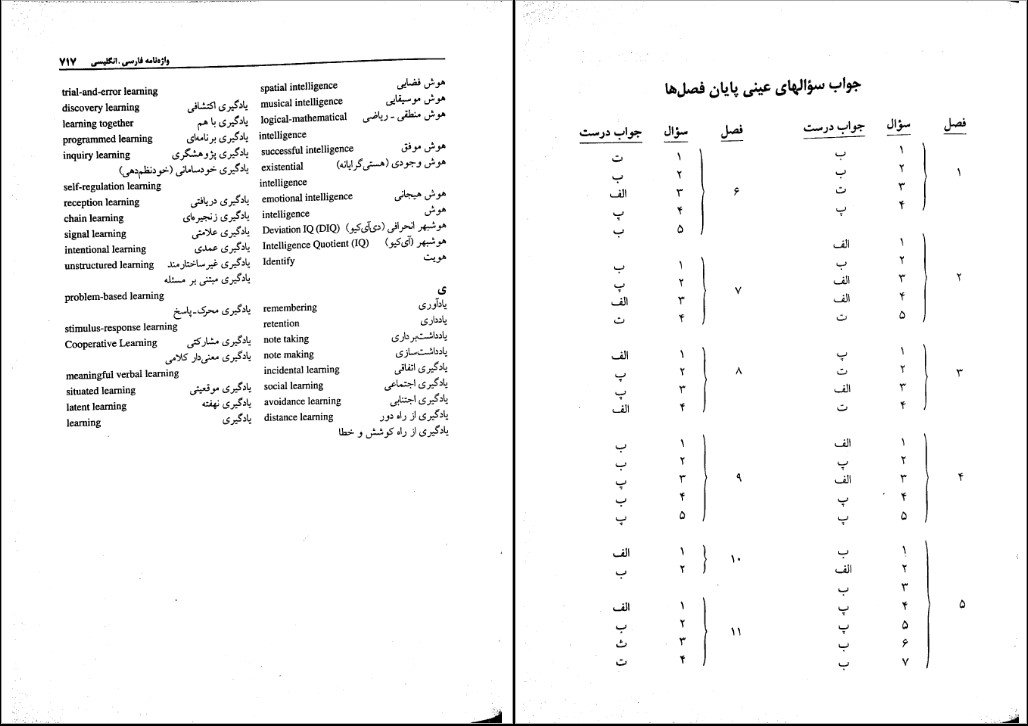 واژه‌نامه فارسی ـ انگلیسی ۷۱۷
هوش فضایی spatial intelligence
هوش موسیقایی musical intelligence
هوش منطقی ـ ریاضی logical-mathematical
intelligence
هوش موفق successful intelligence
هوش وجودی (هستی‌گرایانه) existential
intelligence
هوش هیجانی emotional intelligence
هوش intelligence
هوشبهر انحرافی (دی‌آی‌کیو) Deviation IQ (DIQ)
هوشبهر (آی‌کیو) Intelligence Quotient (IQ)
هویت Identify
ی
یادآوری remembering
یادداری retention
یادداشت‌برداری note taking
یادداشت‌سازی note making
یادگیری اتفاقی incidental learning
یادگیری اجتماعی social learning
یادگیری اجتنابی avoidance learning
یادگیری از راه دور distance learning
یادگیری از راه کوشش و خطا
trial-and-error learning
یادگیری اکتشافی discovery learning
یادگیری با هم learning together
یادگیری برنامه‌ای programmed learning
یادگیری پژوهشگری inquiry learning
یادگیری خودسامانی (خودنظم‌دهی)
self-regulation learning
یادگیری دریافتی reception learning
یادگیری زنجیره‌ای chain learning
یادگیری علامتی signal learning
یادگیری عمدی intentional learning
یادگیری غیرساختارمند unstructured learning
یادگیری مبتنی بر مسئله
problem-based learning
یادگیری محرک‌ـ‌پاسخ
stimulus-response learning
یادگیری مشارکتی Cooperative Learning
یادگیری معنی‌دار کلامی
meaningful verbal learning
یادگیری موقعیتی situated learning
یادگیری نهفته latent learning
یادگیری learning
جواب سؤالهای عینی پایان فصل‌ها
فصل سؤال جواب درست
۱
۱ ب
۲ ب
۳ ت
۴ پ
۲
۱ الف
۲ ب
۳ الف
۴ الف
۵ ت
۳
۱ پ
۲ ت
۳ الف
۴ ت
۴
۱ الف
۲ پ
۳ الف
۴ پ
۵ پ
۵
۱ ب
۲ الف
۳ ب
۴ پ
۵ پ
۶ ب
۷ ب
فصل سؤال جواب درست
۶
۱ ت
۲ ب
۳ الف
۴ پ
۵ ب
۷
۱ ب
۲ پ
۳ الف
۴ ت
۸
۱ الف
۲ پ
۳ پ
۴ الف
۹
۱ ب
۲ ب
۳ پ
۴ ب
۵ پ
۱۰
۱ الف
۲ ب
۱۱
۱ الف
۲ ب
۳ ث
۴ ت